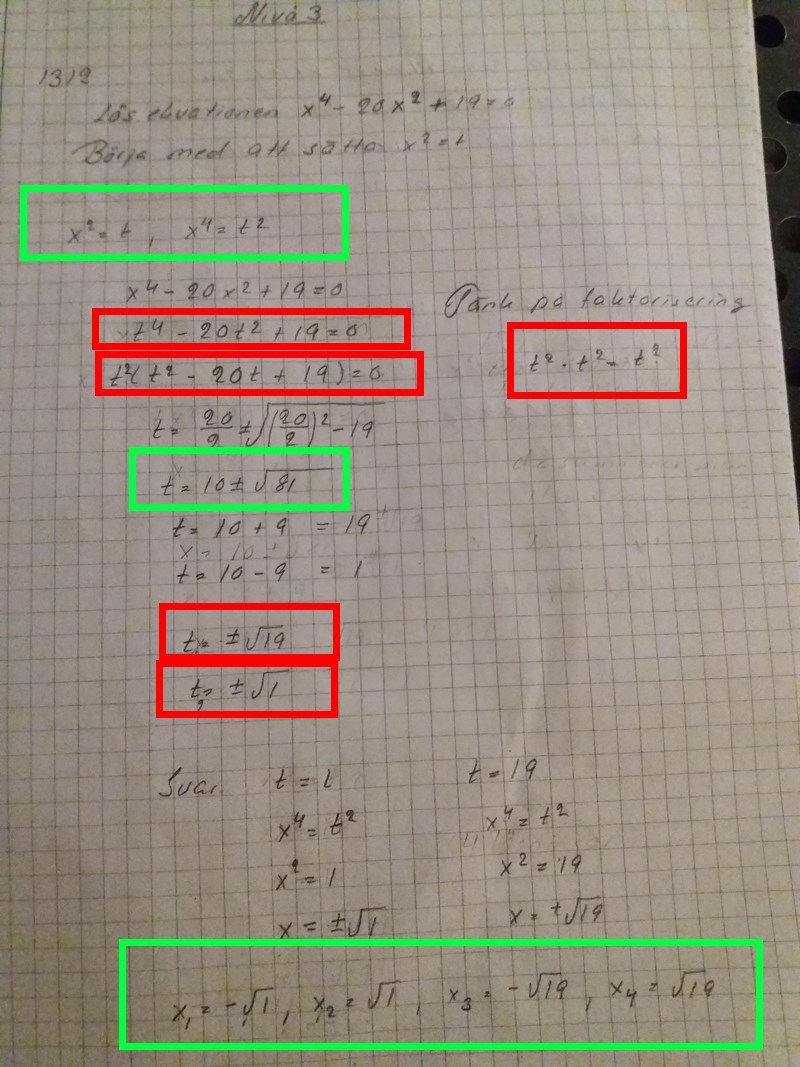 Nivå 3
1312
Lös ekvationen x⁴ - 20x² + 19 = 0
Börja med att sätta x² = t
x² = t , x⁴ = t²
x⁴ - 20x² + 19 = 0
Tänk på faktorisering
t⁴ - 20t² + 19 = 0
t² · t² = t²
t²(t² - 20t + 19) = 0
t = 20/2 ± √((20/2)² - 19)
t = 10 ± √81
t = 10 + 9 = 19
x = 10 ±
t = 10 - 9 = 1
t₁ = ± √19
t₂ = ± √1
Svar. t = 1 t = 19
x⁴ = t² x⁴ = t²
x² = 1 x² = 19
x = ±√1 x = ±√19
x₁ = -√1 , x₂ = √1 , x₃ = -√19 , x₄ = √19